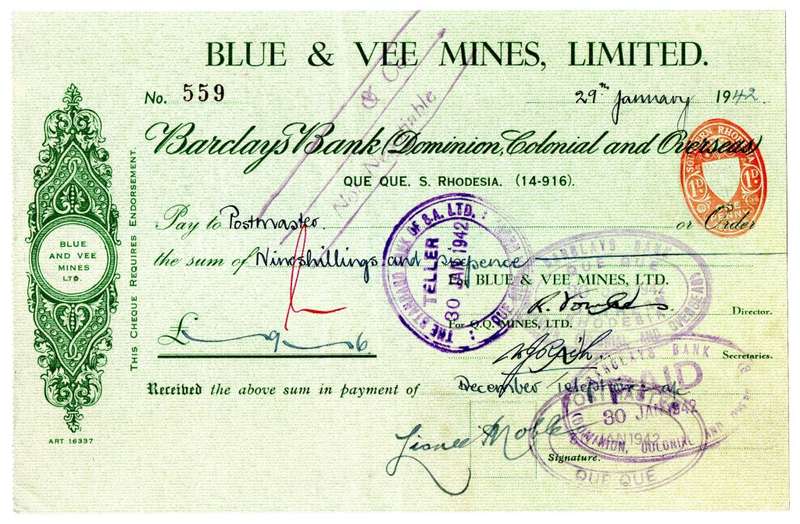 BLUE & VEE MINES, LIMITED.
No. 559
29th January 1942
& Co
Not Negotiable
Barclays Bank (Dominion, Colonial and Overseas)
QUE QUE, S. RHODESIA. (14-916).
SOUTHERN RHODESIA
1D 1D
ONE PENNY
Pay to Postmaster. or Order
the sum of Nine shillings and sixpence
BLUE & VEE MINES, LTD.
Director.
For Q.Q. MINES, LTD.
Secretaries.
£ 9 6
Received the above sum in payment of December Telephone a/c
Lionel Noble
Signature.
THIS CHEQUE REQUIRES ENDORSEMENT.
BLUE
AND VEE
MINES
LTD.
ART 16337
THE STANDARD BANK OF S.A. LTD.
TELLER
30 JAN 1942
QUE QUE
BARCLAYS BANK
QUE QUE
RHODESIA
BARCLAYS BANK
PAID
POSTMASTER
30 JAN 1942
JAN 1942
DOMINION, COLONIAL AND
QUE QUE